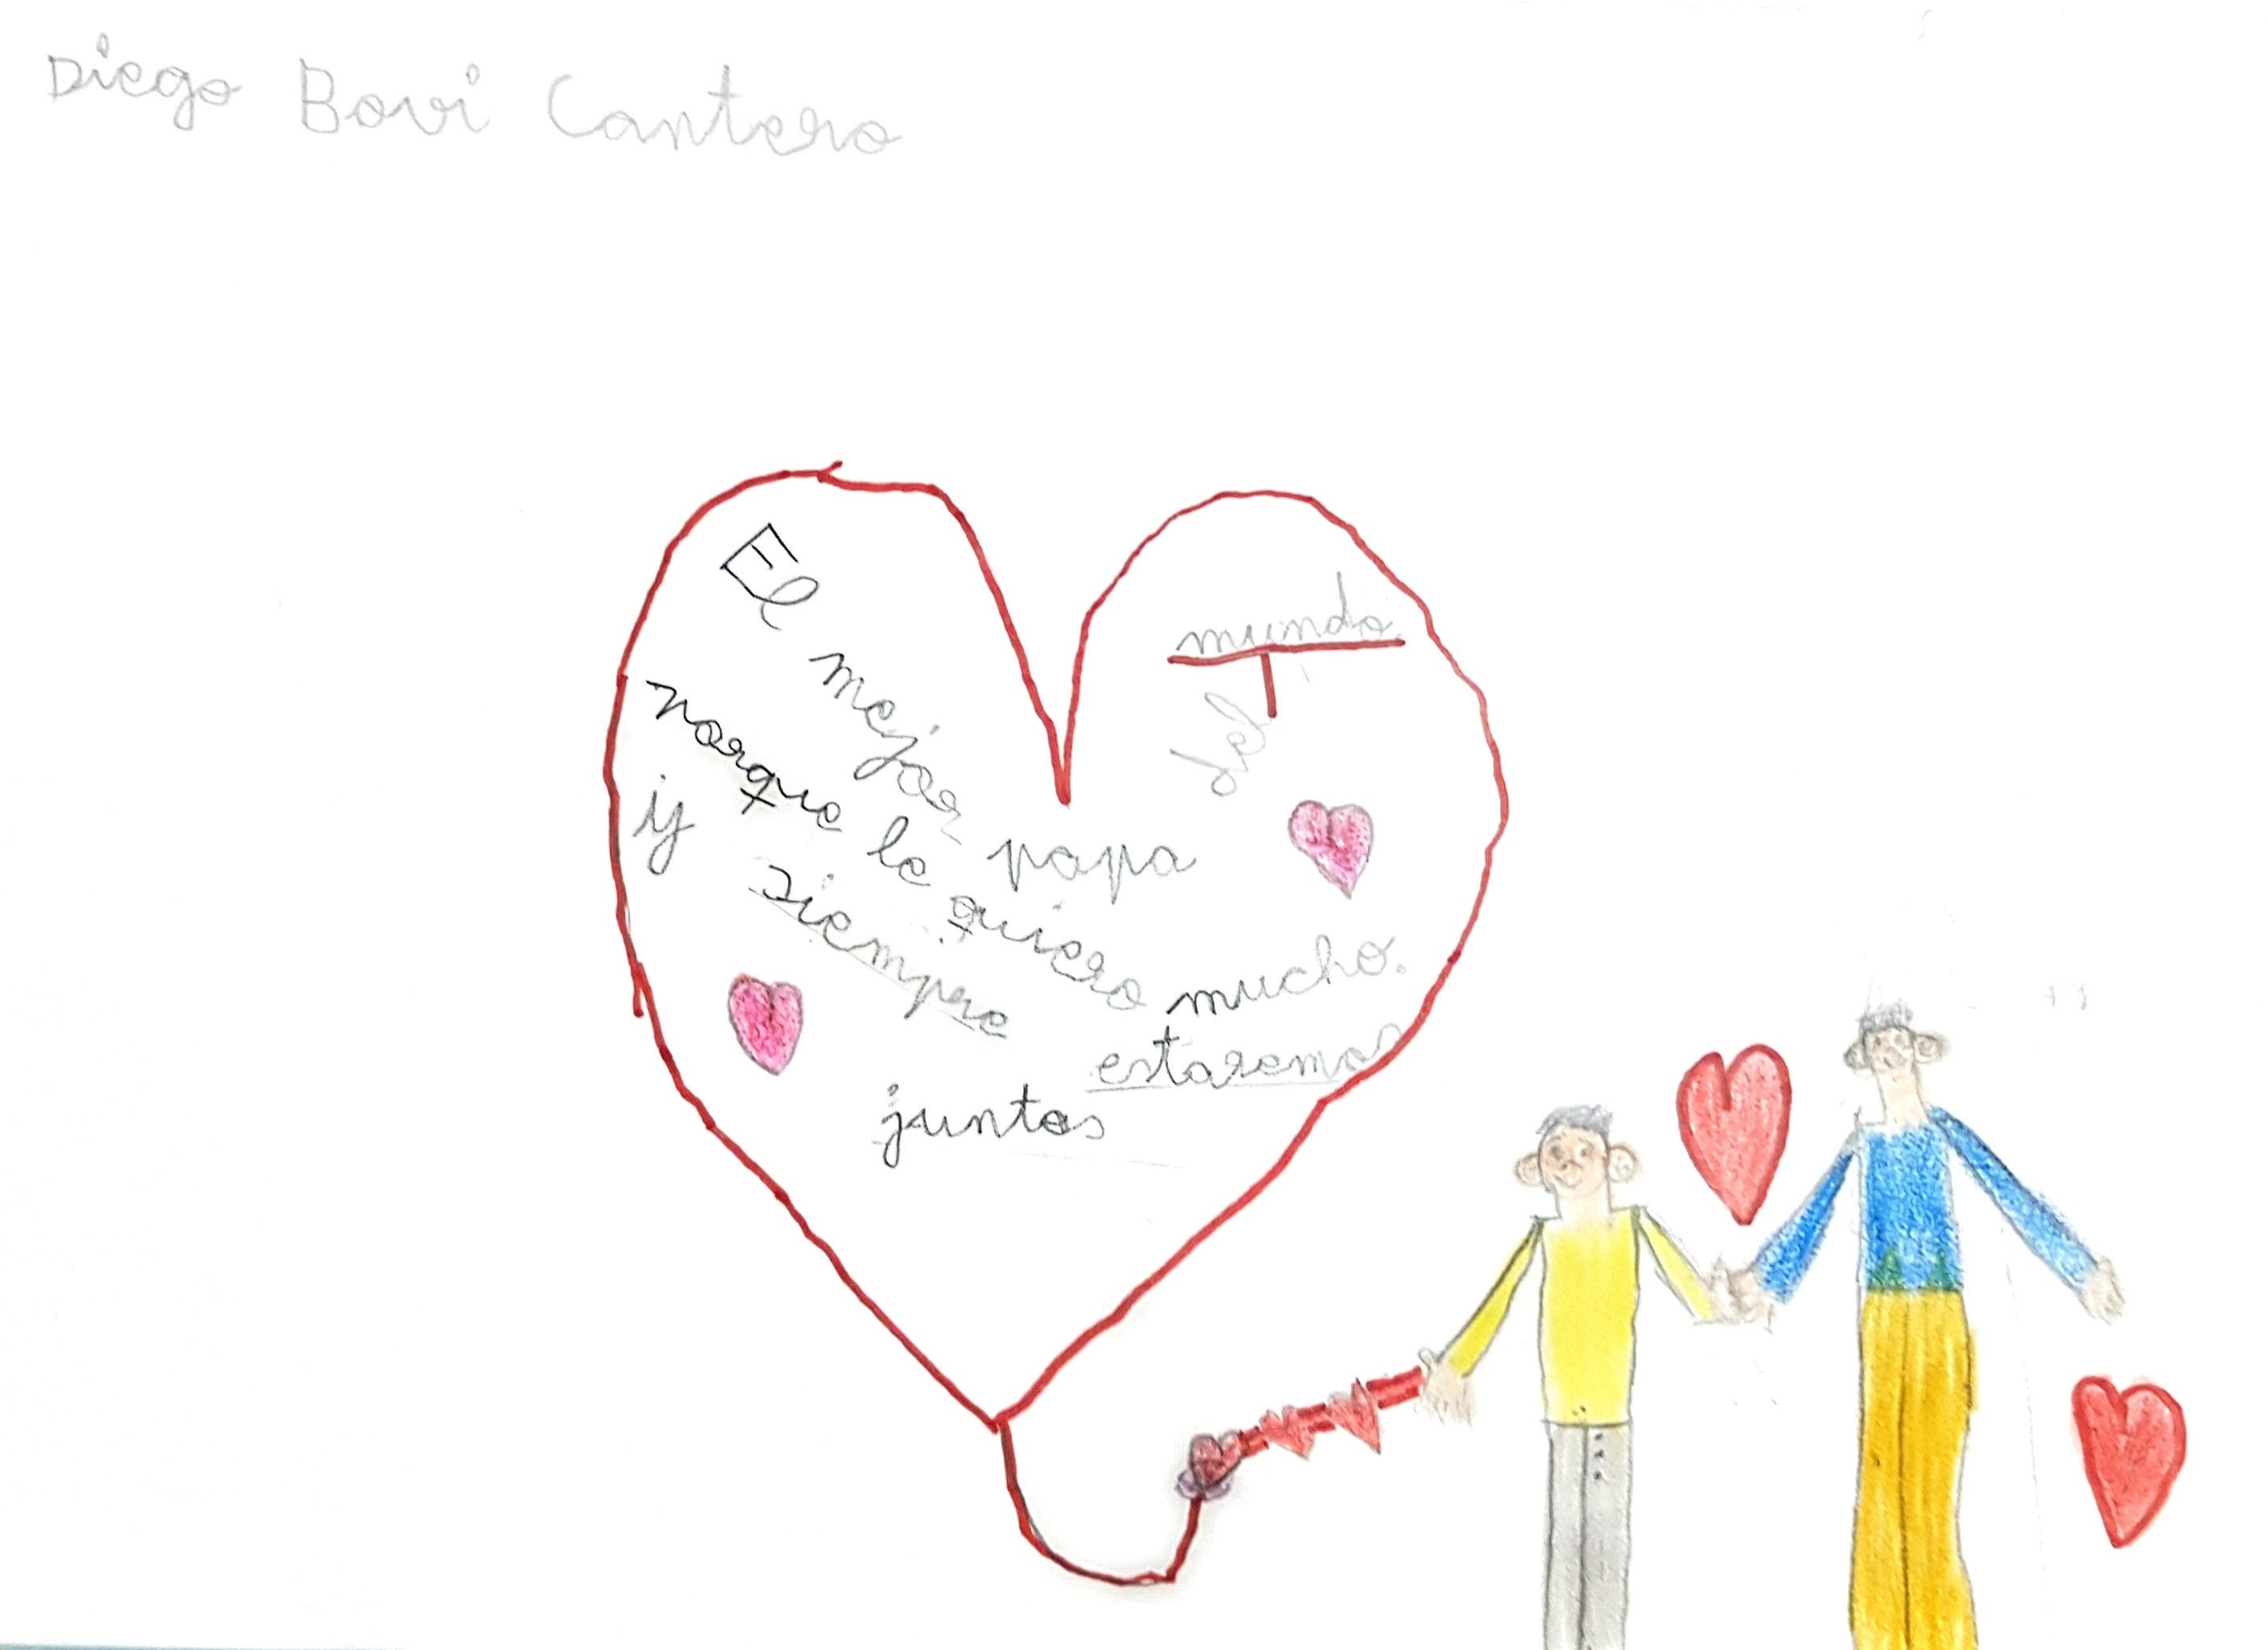 Diego Bovi Cantero
El mejor papa del mundo.
porque le quiero mucho.
y siempre estaremos
juntos